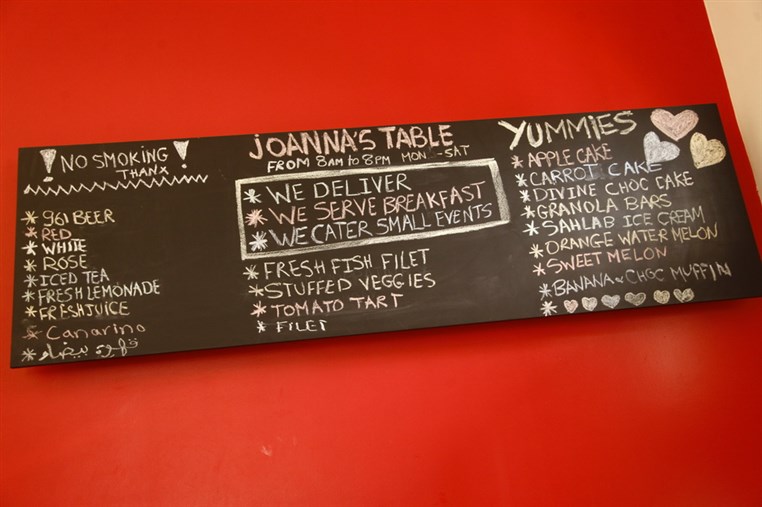 ! NO SMOKING !
THANX
* 961 BEER
* RED
* WHITE
* ROSE
* ICED TEA
* FRESH LEMONADE
* FRESH JUICE
* Canarino
* قهوة بيضاء
JOANNA'S TABLE
FROM 8AM to 8PM MON - SAT
* WE DELIVER
* WE SERVE BREAKFAST
* WE CATER SMALL EVENTS
* FRESH FISH FILET
* STUFFED VEGGIES
* TOMATO TART
* FILET
YUMMIES
* APPLE CAKE
* CARROT CAKE
* DIVINE CHOC CAKE
* GRANOLA BARS
* SAHLAB ICE CREAM
* ORANGE WATER MELON
* SWEET MELON
* BANANA & CHOC MUFFIN